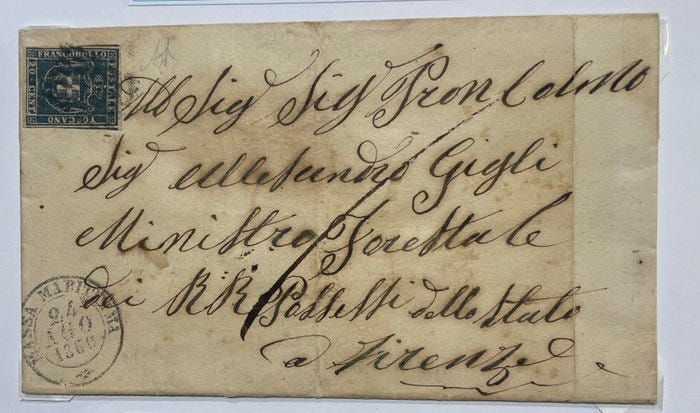 FRANCOBOLLO
POSTALE
TOSCANO
20 CENT
All Sig Sig Pron Colmo
Sig Allesandro Gigli
Ministro Forestale
di RR Possessi dello Stato
a Firenze
MASSA MARITTIMA
24
1860